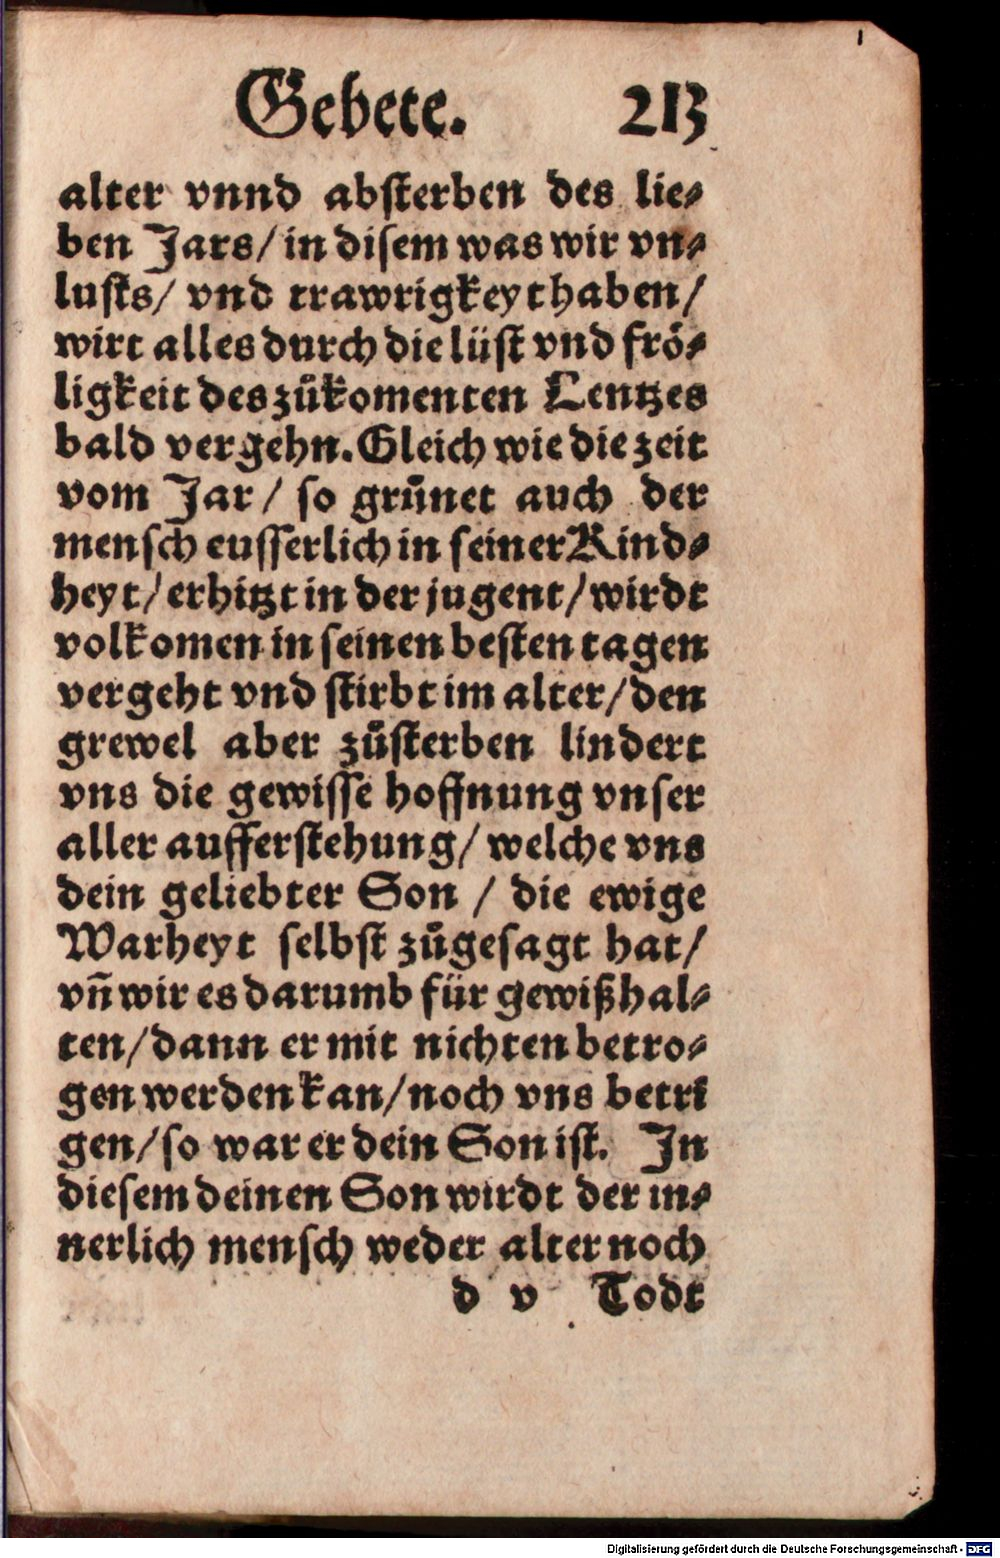 Gebete. 213
alter vnnd absterben des lie⸗
ben Jars/ in disem was wir vn⸗
lusts/ vnd trawrigkeyt haben/
wirt alles durch die lüst vnd frö⸗
ligkeit des zuͤkomenten Lentzes
bald vergehn. Gleich wie die zeit
vom Jar/ so gruͤnet auch der
mensch eusserlich in seiner Kind⸗
heyt/ erhitzt in der jugent/ wirdt
volkomen in seinen besten tagen
vergeht vnd stirbt im alter/ den
grewel aber zuͤsterben lindert
vns die gewisse hoffnung vnser
aller aufferstehung/ welche vns
dein geliebter Son / die ewige
Warheyt selbst zuͤgesagt hat/
vñ wir es darumb für gewiß hal⸗
ten/ dann er mit nichten betro⸗
gen werden kan/ noch vns betri
gen/ so war er dein Son ist. In
diesem deinen Son wirdt der in⸗
nerlich mensch weder alter noch
d v Todt
Digitalisierung gefördert durch die Deutsche Forschungsgemeinschaft - DFG